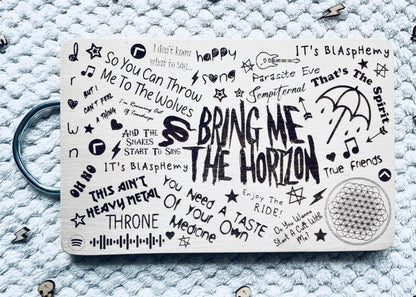 I don't know
what to say...
happy
song
IT'S BlAsPHemy
So You Can Throw
Me To The Wolves
Parasite Eve
That's The Spirit
Sempiternal
drown
BUT I
CAN'T FEEL
A THING
I'm Running Out
Of
AND THE
SNAKES
START TO SING
BRING ME
THE HORIZON
IT'S BlAsPHemy
True Friends
OH NO
THIS AIN'T
HEAVY METAL
You Need A TASTE
Of Your Own
Medicine
Enjoy The
RIDE!
Do You Wanna
Start A Cult With
Me?
THRONE